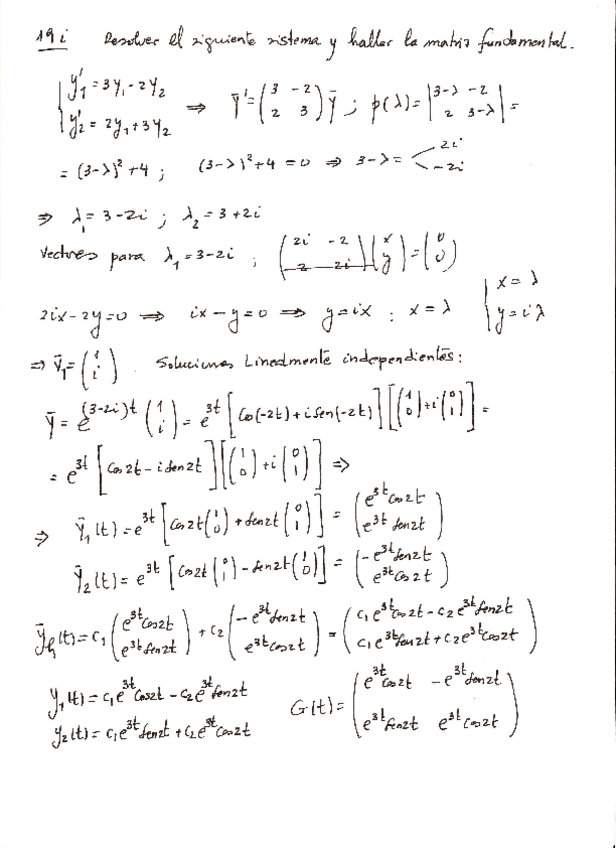 19 i Resolver el siguiente sistema y hallar la matriz fundamental.
{ y₁' = 3y₁ - 2y₂
{ y₂' = 2y₁ + 3y₂
⇒ Ȳ' = (3 -2; 2 3) Ȳ ; p(λ) = |3-λ -2; 2 3-λ| =
= (3-λ)² + 4 ; (3-λ)² + 4 = 0 ⇒ 3-λ = < 2i, -2i
⇒ λ₁ = 3-2i ; λ₂ = 3+2i
Vectores para λ₁ = 3-2i ; (2i -2; 2 2i)(x; y) = (0; 0)
2ix - 2y = 0 ⇒ ix - y = 0 ⇒ y = ix : x = λ { x = λ; y = iλ
⇒ v̄₁ = (1; i) . Soluciones Linealmente independientes:
Ȳ = e^{(3-2i)t} (1; i) = e^{3t} [Cos(-2t) + i sen(-2t)] [(1; 0) + i(0; 1)] =
= e^{3t} [Cos 2t - i sen 2t] [(1; 0) + i(0; 1)] ⇒
⇒ Ȳ₁(t) = e^{3t} [Cos 2t (1; 0) + sen 2t (0; 1)] = (e^{3t} Cos 2t; e^{3t} sen 2t)
Ȳ₂(t) = e^{3t} [Cos 2t (0; 1) - sen 2t (1; 0)] = (-e^{3t} sen 2t; e^{3t} Cos 2t)
Ȳ_h(t) = c₁ (e^{3t} Cos 2t; e^{3t} sen 2t) + c₂ (-e^{3t} sen 2t; e^{3t} Cos 2t) = (c₁e^{3t} Cos 2t - c₂e^{3t} sen 2t; c₁e^{3t} sen 2t + c₂e^{3t} Cos 2t)
y₁(t) = c₁e^{3t} Cos 2t - c₂e^{3t} sen 2t
y₂(t) = c₁e^{3t} sen 2t + c₂e^{3t} Cos 2t
G(t) = (e^{3t} Cos 2t -e^{3t} sen 2t; e^{3t} sen 2t e^{3t} Cos 2t)